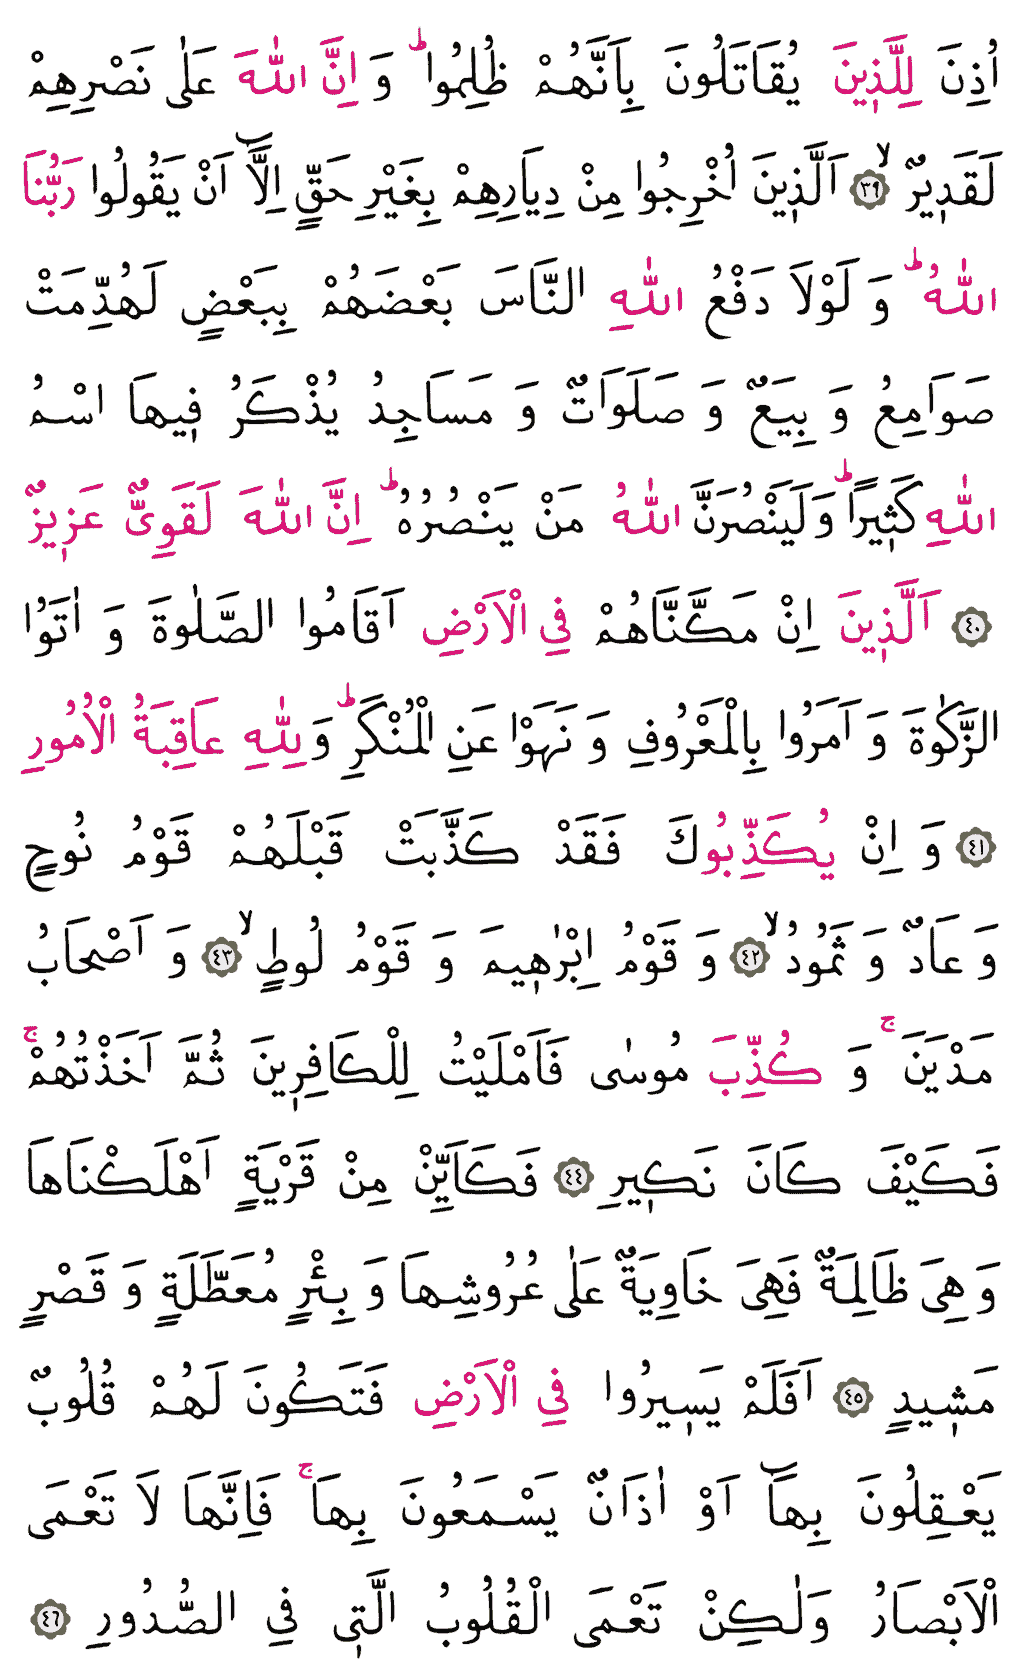 اُذِنَ لِلَّذٖينَ يُقَاتَلُونَ بِاَنَّهُمْ ظُلِمُواؕ وَ اِنَّ اللّٰهَ عَلٰى نَصْرِهِمْ
لَقَدٖيرٌۙ ﴿٣٩﴾ اَلَّذٖينَ اُخْرِجُوا مِنْ دِيَارِهِمْ بِغَيْرِ حَقٍّ اِلَّٓا اَنْ يَقُولُوا رَبُّنَا
اللّٰهُؕ وَ لَوْلَا دَفْعُ اللّٰهِ النَّاسَ بَعْضَهُمْ بِبَعْضٍ لَهُدِّمَتْ
صَوَامِعُ وَ بِيَعٌ وَ صَلَوَاتٌ وَ مَسَاجِدُ يُذْكَرُ فٖيهَا اسْمُ
اللّٰهِ كَثٖيرًاؕ وَلَيَنْصُرَنَّ اللّٰهُ مَنْ يَنْصُرُهُؕ اِنَّ اللّٰهَ لَقَوِىٌّ عَزٖيزٌ
﴿٤٠﴾ اَلَّذٖينَ اِنْ مَكَّنَّاهُمْ فِى الْاَرْضِ اَقَامُوا الصَّلٰوةَ وَ اٰتَوُا
الزَّكٰوةَ وَ اَمَرُوا بِالْمَعْرُوفِ وَ نَهَوْا عَنِ الْمُنْكَرِؕ وَ لِلّٰهِ عَاقِبَةُ الْاُمُورِ
﴿٤١﴾ وَ اِنْ يُكَذِّبُوكَ فَقَدْ كَذَّبَتْ قَبْلَهُمْ قَوْمُ نُوحٍ
وَ عَادٌ وَ ثَمُودُۙ ﴿٤٢﴾ وَ قَوْمُ اِبْرٰهٖيمَ وَ قَوْمُ لُوطٍۙ ﴿٤٣﴾ وَ اَصْحَابُ
مَدْيَنَۚ وَ كُذِّبَ مُوسٰى فَاَمْلَيْتُ لِلْكَافِرٖينَ ثُمَّ اَخَذْتُهُمْۚ
فَكَيْفَ كَانَ نَكٖيرِ ﴿٤٤﴾ فَكَاَيِّنْ مِنْ قَرْيَةٍ اَهْلَكْنَاهَا
وَ هِىَ ظَالِمَةٌ فَهِىَ خَاوِيَةٌ عَلٰى عُرُوشِهَا وَ بِئْرٍ مُعَطَّلَةٍ وَ قَصْرٍ
مَشٖيدٍ ﴿٤٥﴾ اَفَلَمْ يَسٖيرُوا فِى الْاَرْضِ فَتَكُونَ لَهُمْ قُلُوبٌ
يَعْقِلُونَ بِهَٓا اَوْ اٰذَانٌ يَسْمَعُونَ بِهَاۚ فَاِنَّهَا لَا تَعْمَى
الْاَبْصَارُ وَلٰكِنْ تَعْمَى الْقُلُوبُ الَّتٖى فِى الصُّدُورِ ﴿٤٦﴾